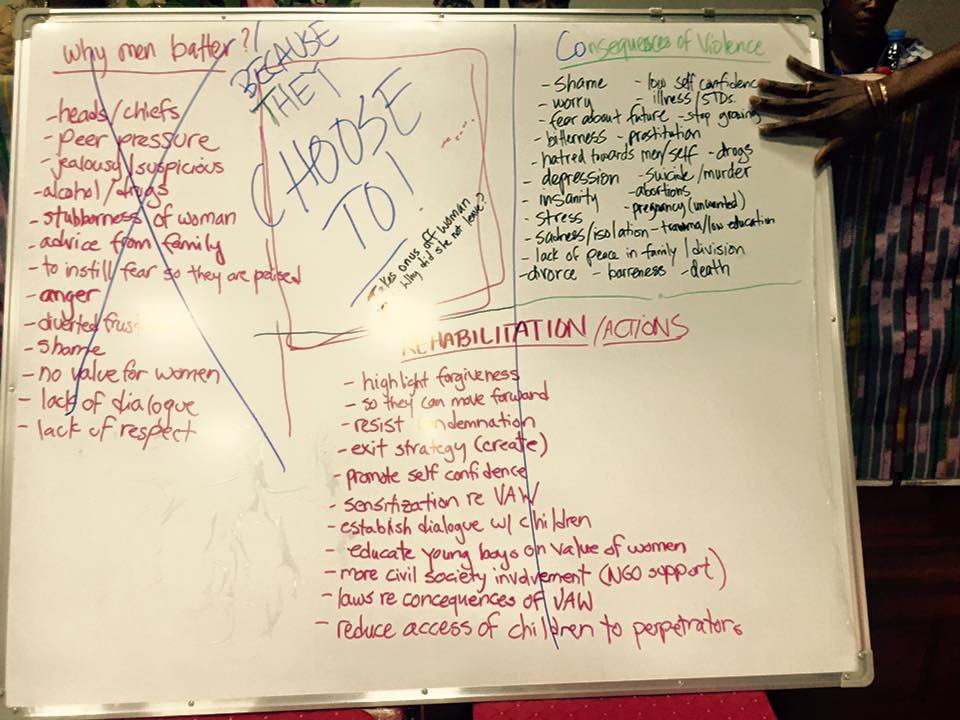 Why men batter?!
- heads/chiefs
- peer pressure
- jealousy/suspicious
- alcohol/drugs
- stubborness of woman
- advice from family
- to instill fear so they are
- anger
- diverted
- shame
- no value for women
- lack of dialogue
- lack of respect
BECAUSE
THEY
CHOOSE
TO!
onus off woman
Why did she not leave?
Consequences of Violence
- shame - low self confidence
- worry - illness/STDs.
- fear about future - stop growing
- bitterness - prostitution
- hatred towards men/self - drugs
- depression - suicide/murder
- insanity - abortions
- stress - pregnancy (unwanted)
- sadness/isolation - trauma/low education
- lack of peace in family/division
- divorce - barreness - death
REHABILITATION/ACTIONS
- highlight forgiveness
- so they can move forward
- resist ndemnation
- exit strategy (create)
- promote self confidence
- sensitization re VAW
- establish dialogue w/ children
- educate young boys on value of women
- more civil society involvement (NGO support)
- laws re concequences of VAW
- reduce access of children to perpetrators